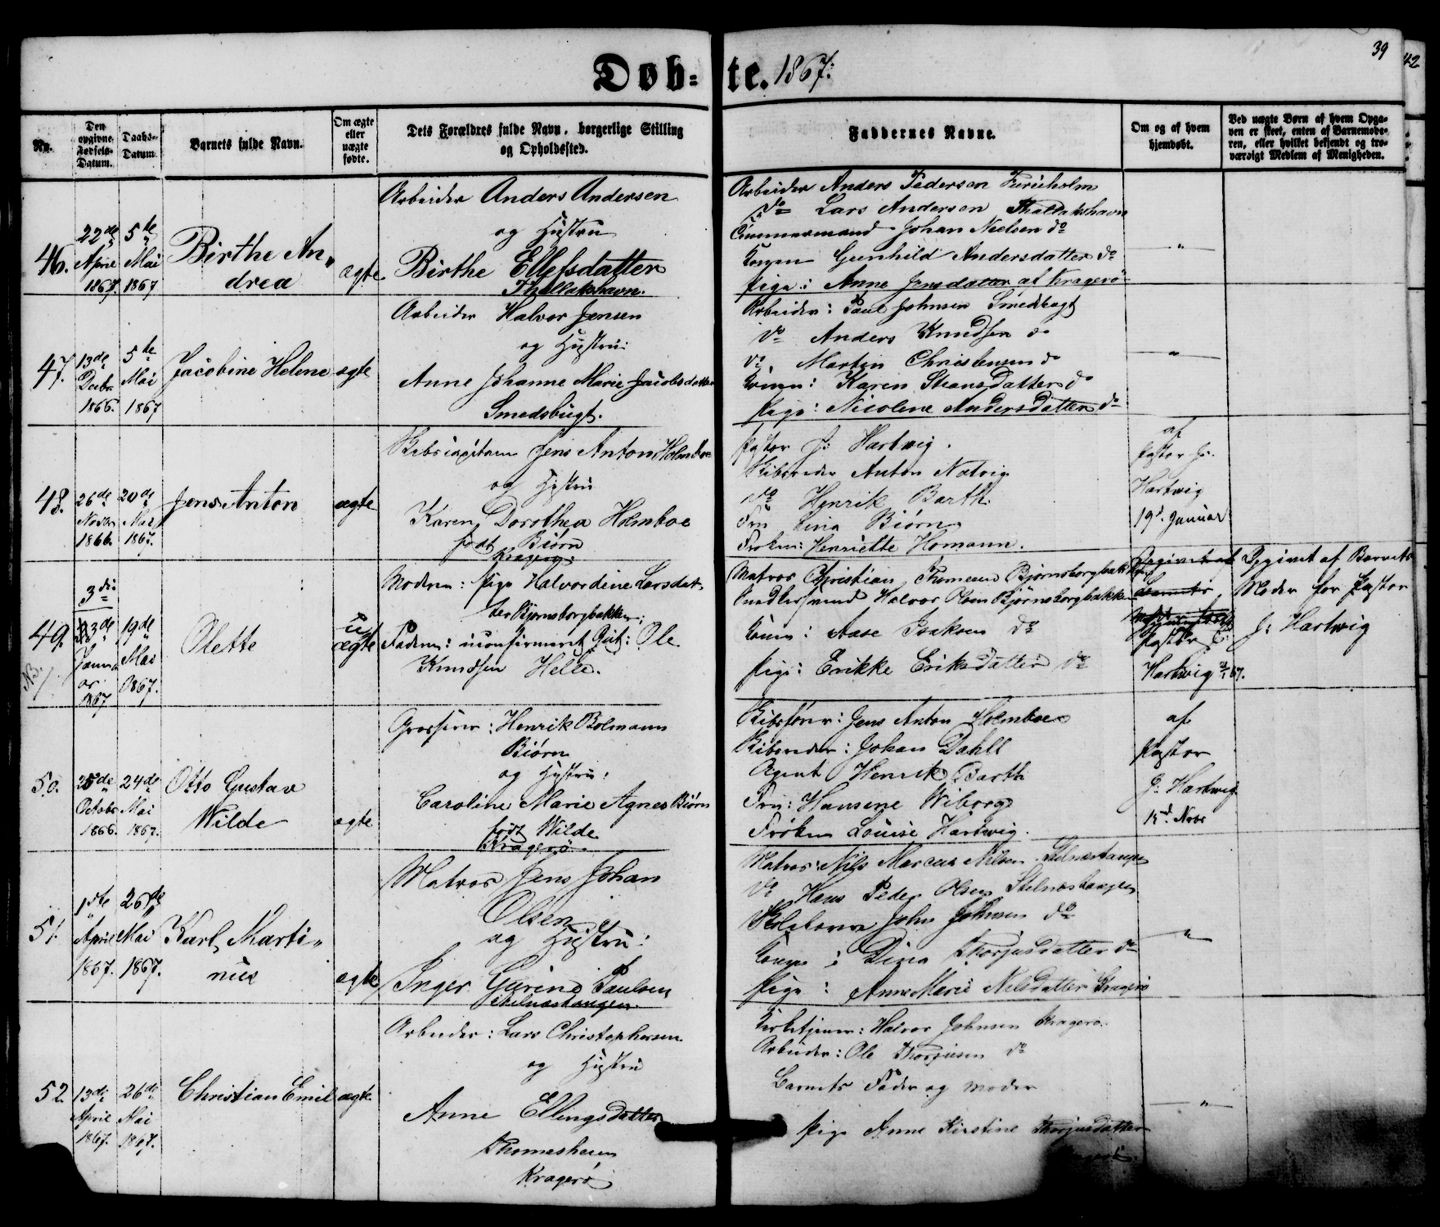 Døb=te. 1867.
39
42
No.
Den opgivne Fødsels-Datum.
Daabs-Datum.
Barnets fulde Navn.
Om ægte eller uægte fødte.
Dets Forældres fulde Navn, borgerlige Stilling og Opholdssted.
Faddernes Navne.
Om og af hvem hjemdøbt.
Ved uægte Børn af hvem Opgaven er skeet, enten af Barnemoderen, eller hvilket bekjendt og troværdigt Medlem af Menigheden.
46.
22de April 1867.
5te Mai 1867
Birthe Andrea
ægte
Arbeider Anders Andersen
og Hustru
Birthe Ellefsdatter
Thallakshavn.
Arbeider Anders Pedersen Furuholm
do Lars Andersen Thallakshavn
Timmermand Johan Nielsen do
Gunhild Andersdatter do
Pige: Anne Jensdatter af Kragerø
"
47.
13de Decbr 1866.
5te Mai 1867
Jacobine Helene
ægte
Arbeider Halvor Jensen
og Hustru:
Anne Johanne Marie Jacobsdatter
Smedsbugt.
Arbeider: Paul Johnsen Smedsbugt
do Anders Knudsen do
do Martin Christensen do
Karen Stransdatter do
Pige: Nicoline Andersdatter do
"
48.
26de Novbr 1866.
20de Mai 1867.
Jens Anton
ægte
Skibscapitain Jens Anton Holmboe
og Hustru
Karen Dorothea Holmboe
født Biørn
Kragerø
Pastor J: Hartwig.
Skibsreder Anton Natvig
do Henrik Barth
Fru Lina Biørn
Frøken: Henriette Homann.
af
Pastor J:
Hartwig
19d Januar
49.
NB.
3die
Januar
1867
19de Mai 1867.
Olette
uægte
Moderen: Pige Halvordine Larsdatter
Bjørnsborgbakken;
Faderen: uconfirmeret Gut: Ole
Knudsen Helle.
Matros Christian Thomsen Bjørnsborgbakken
Halvor Olsen Bjørnsborgbakken
Aase Isaksen do
Pige: Erikke Eriksdatter do
Pastor J:
Hartwig
67.
Opgivet af Barnets
Moder for Pastor
J: Hartwig
50.
25de Octobr 1866.
24de Mai 1867.
Otto Gustav
Wilde
ægte
Grosserer: Henrik Bolmann
Biørn
og Hustru:
Caroline Marie Agnes Biørn
født Wilde
Kragerø
Skibsfører: Jens Anton Holmboe
Skibsreder: Johan Dahll
Agent Henrik Barth
Fru: Hansine Wiborg
Frøken Louise Hartwig.
af
Pastor
J: Hartwig
15d Novbr
51.
1ste April 1867.
26de Mai 1867.
Karl Martinius
ægte
Matros Jens Johan
Olsen
og Hustru:
Inger Gurine Paulsen
Stelnæstangen.
Matros: Nils Marcus Nilsen Stelnæstangen
do Hans Peder Olsen Stelnæstangen
John Johnsen do
Dina Thorjusdatter do
Pige: Anne Marie Nilsdatter Kragerø
"
52
13de April 1867.
26de Mai 1867.
Christian Emil
ægte
Arbeider: Lars Christophersen
og Hustru
Anne Ellingsdatter
Thomeshaven
Kragerø
Halvor Johnsen Kragerø.
Arbeider: Ole Thorjusen do
Barnets Fader og Moder
Pige Anne Kirstine Thorjusdatter
"